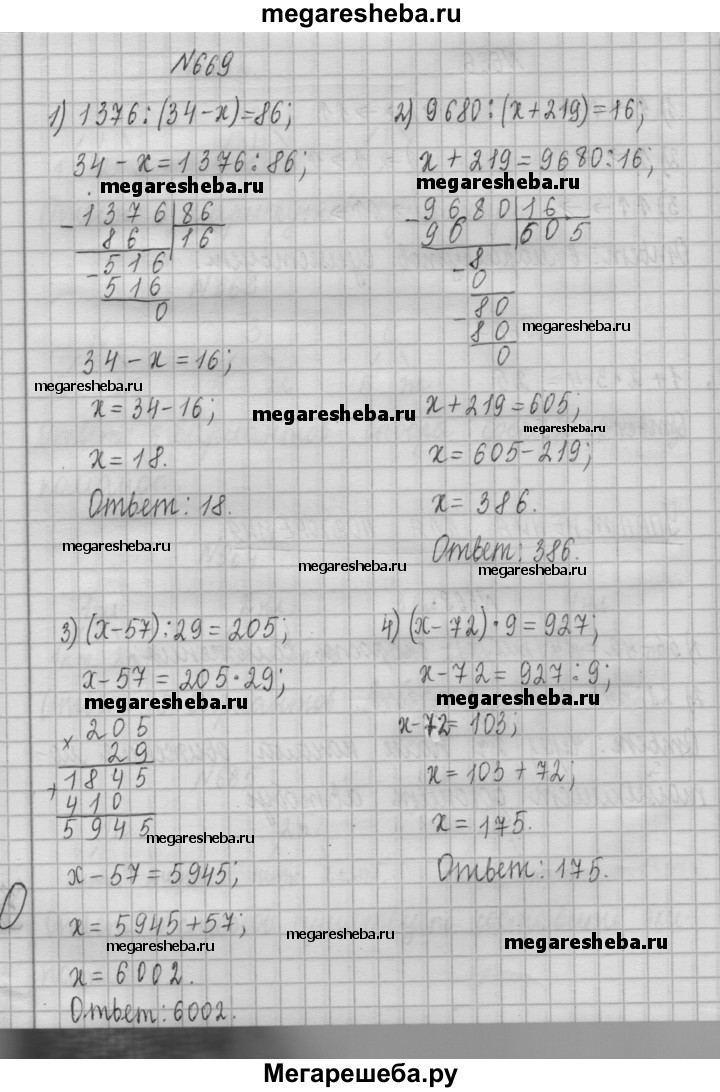 megaresheba.ru
№669
1) 1376:(34-x)=86;
34-x=1376:86;
megaresheba.ru
- 1376 | 86
86 | 16
- 516
516
0
34-x=16;
megaresheba.ru
x=34-16;
megaresheba.ru
x=18.
Ответ: 18.
megaresheba.ru
2) 9680:(x+219)=16;
x+219=9680:16;
megaresheba.ru
- 9680 | 16
96 | 605
- 8
0
- 80
80
megaresheba.ru
0
x+219=605;
megaresheba.ru
x=605-219;
x=386.
Ответ: 386.
megaresheba.ru
3) (x-57):29=205;
x-57=205·29;
megaresheba.ru
x 205
29
+ 1845
410
5945
megaresheba.ru
x-57=5945;
x=5945+57;
megaresheba.ru
x=6002.
Ответ: 6002.
4) (x-72)·9=927;
x-72=927:9;
megaresheba.ru
x-72=103;
x=103+72;
x=175.
Ответ: 175.
megaresheba.ru
megaresheba.ru
Мегарешеба.ру